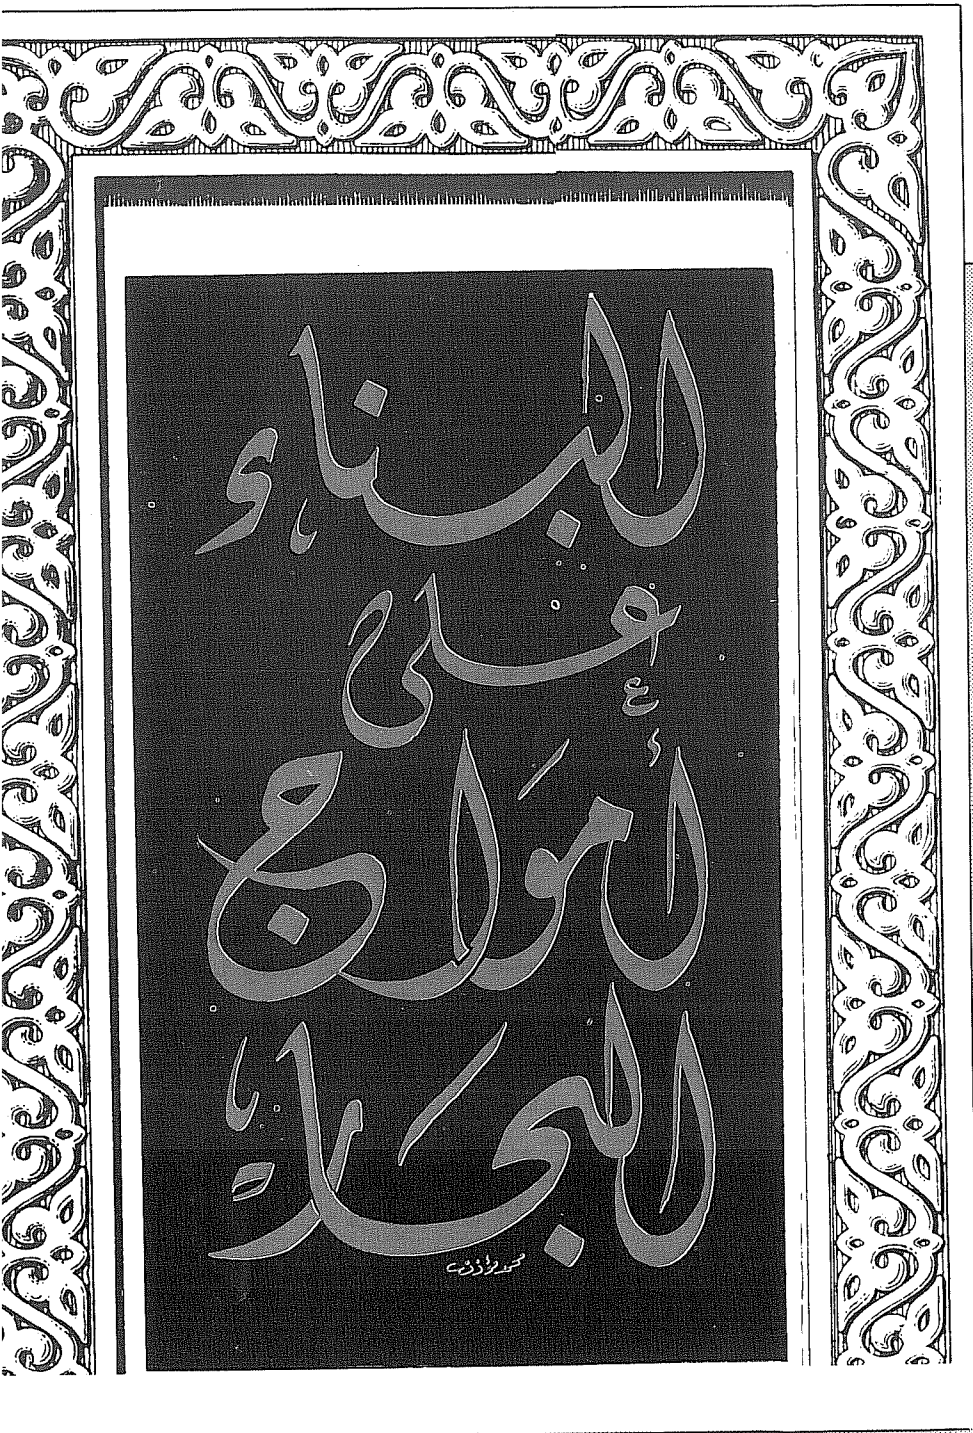 البناء
على
أمَواج
البحَار